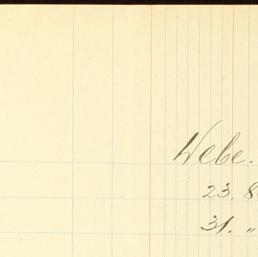 Webe.
23. 8
31. "